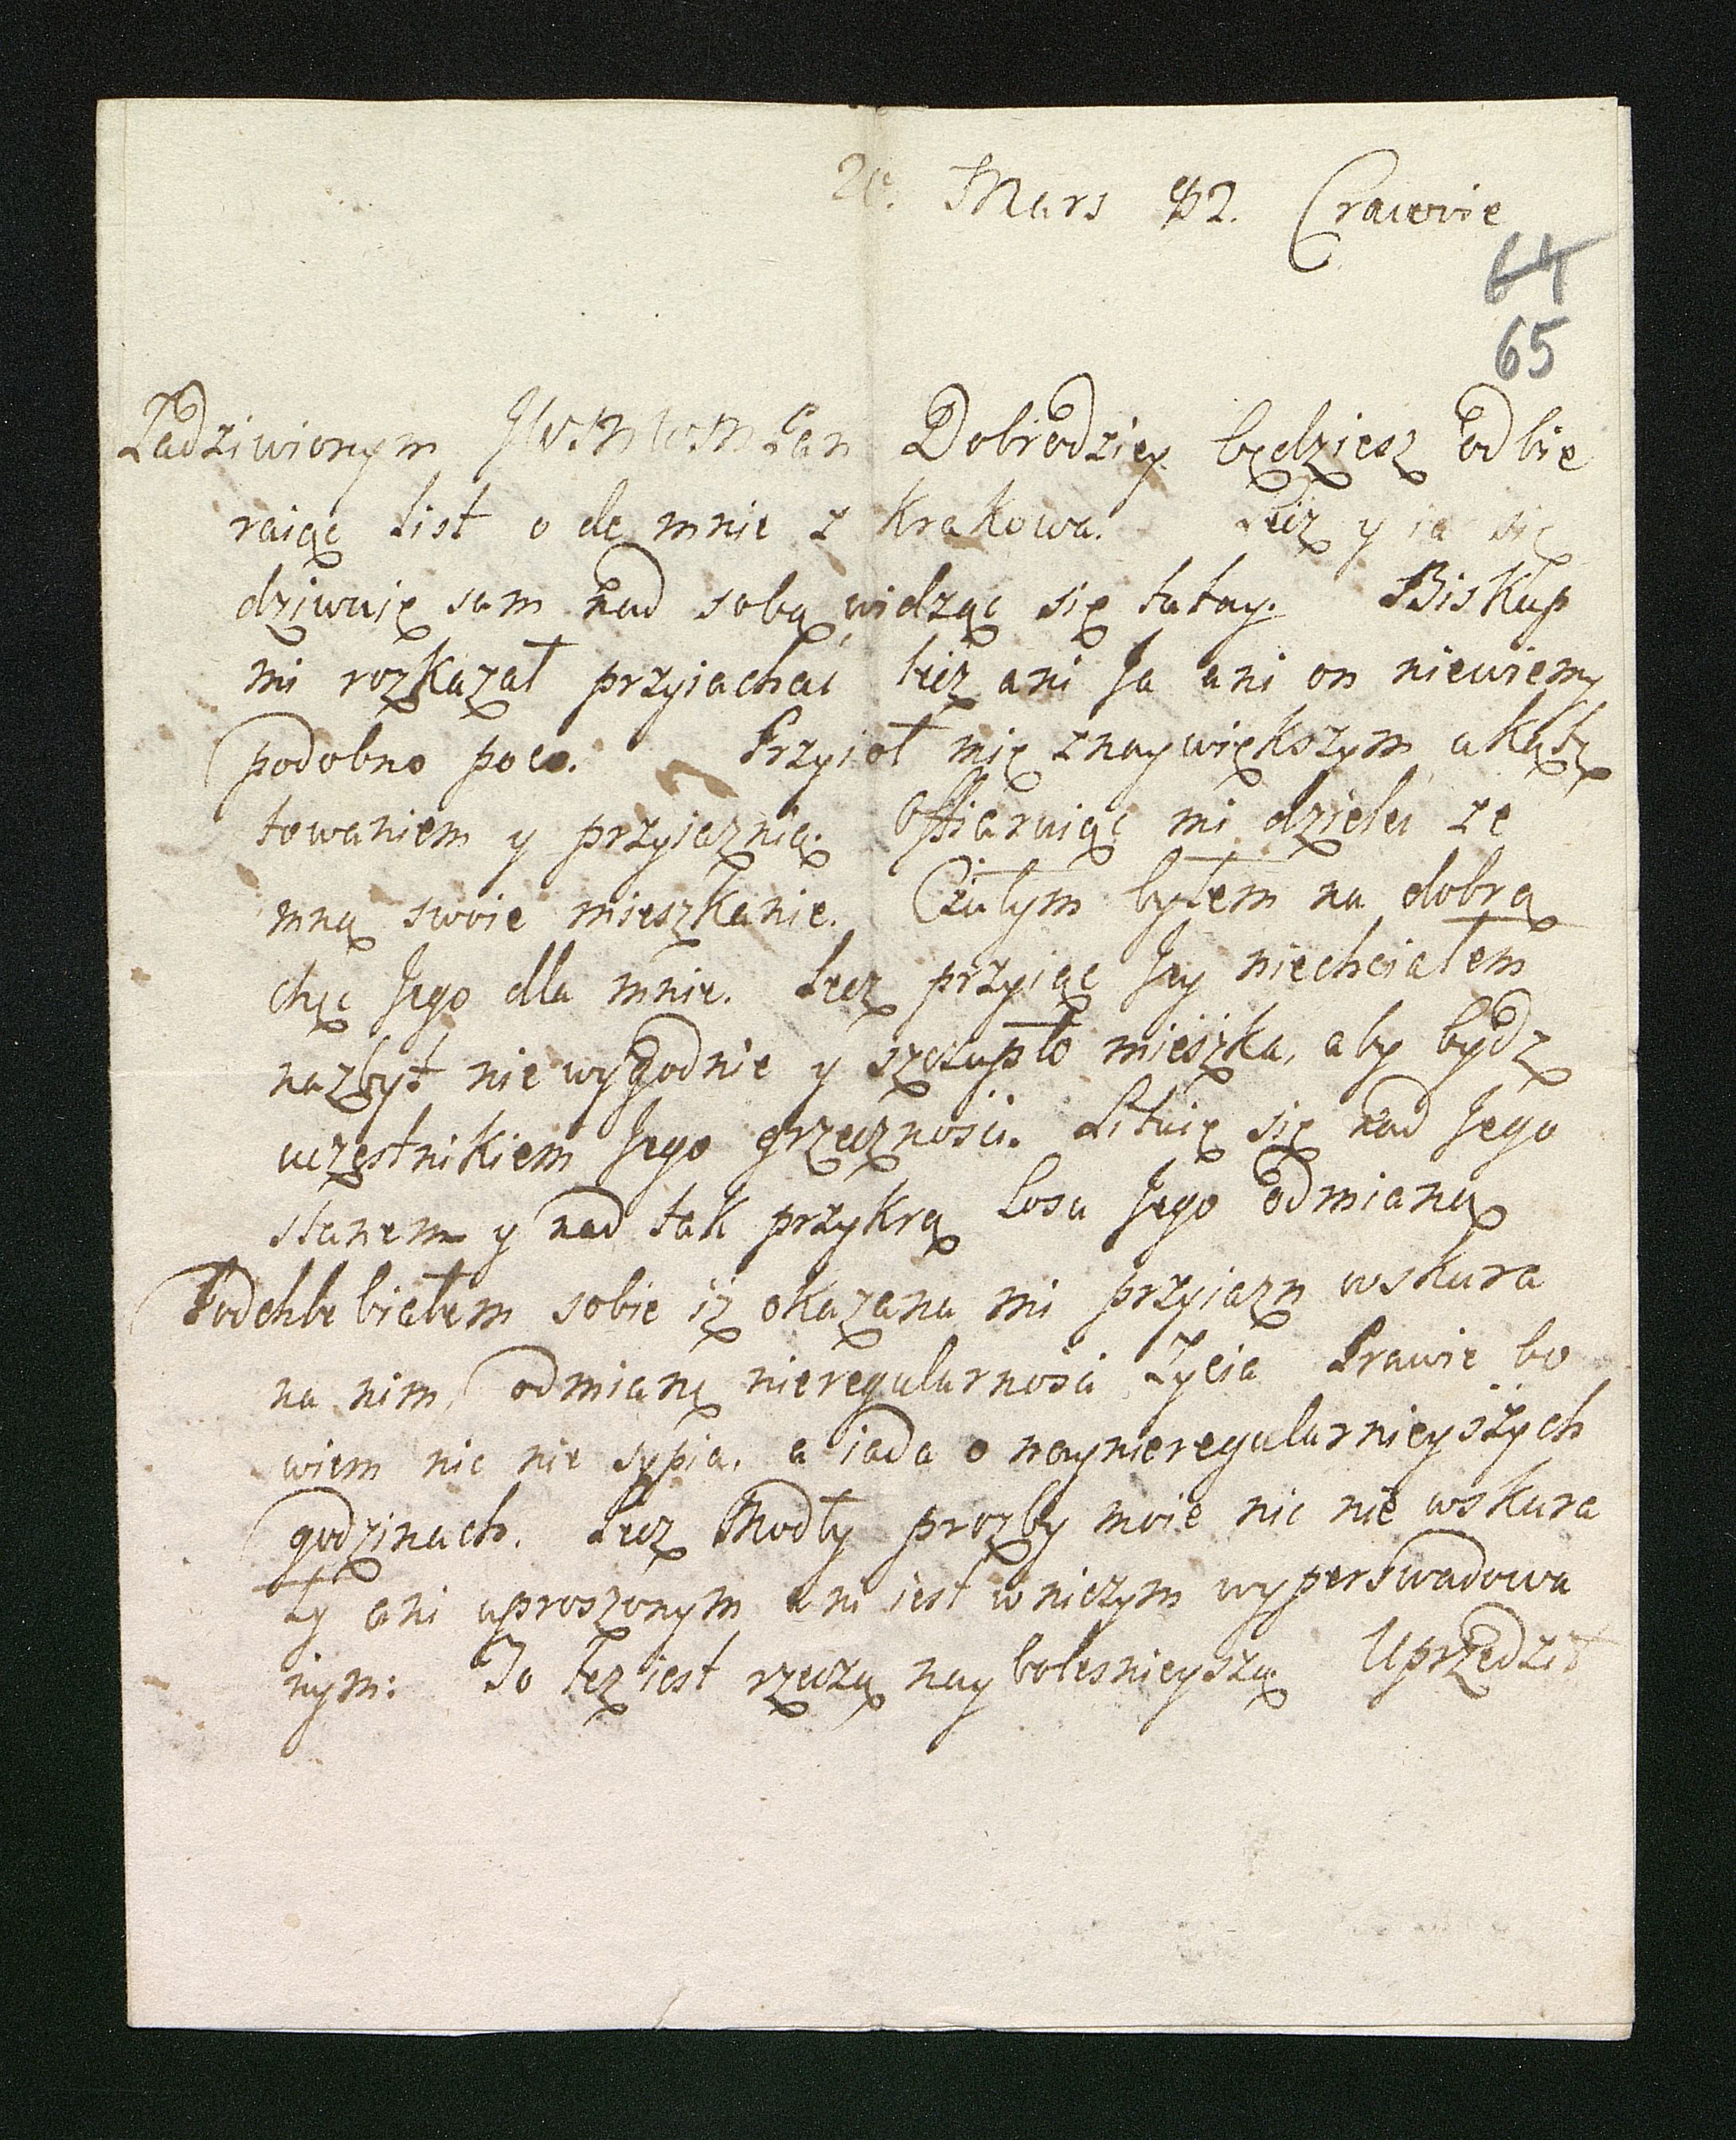 Mars 82. Cracovie
64
65
Zadziwionym JWMWM Pan Dobrodziey będziesz odbie
raiąc list o de mnie z Krakowa. Lecz y ia się
dziwuię sam nad sobą widząc się tutay. Biskup
mi rozkazał przyiachać lecz ani Ja ani on niewiemy
podobno poco. Przyioł mię z naywiększym akąty
towaniem y przyiaznią. Offiaruiąc mi dzielić ze
mną swoie mieszkanie. Czułym byłem na dobrą
chęć Jego dla mnie. Lecz przyiąć Jey niechciałem
nazbyt nie wygodnie y szczupło mieszka, aby bydz
uczęstnikiem Jego grzeczności. Lituię się nad Jego
stanem y nad tak przykrą losu Jego odmianą
Podchlebiałem sobie iz okazana mi przyiazn wskura
na nim, odmianę nieregularności Zycia Prawie bo
wiem nic nie sypia, a iada o naynieregularnieyszych
godzinach. Lecz Modły prozby moie nic nie wskura
ły ani uproszonym ani iest w niczym wyperswadowa
nym: To tez iest rzeczą nayboleśnieyszą Uprzedził